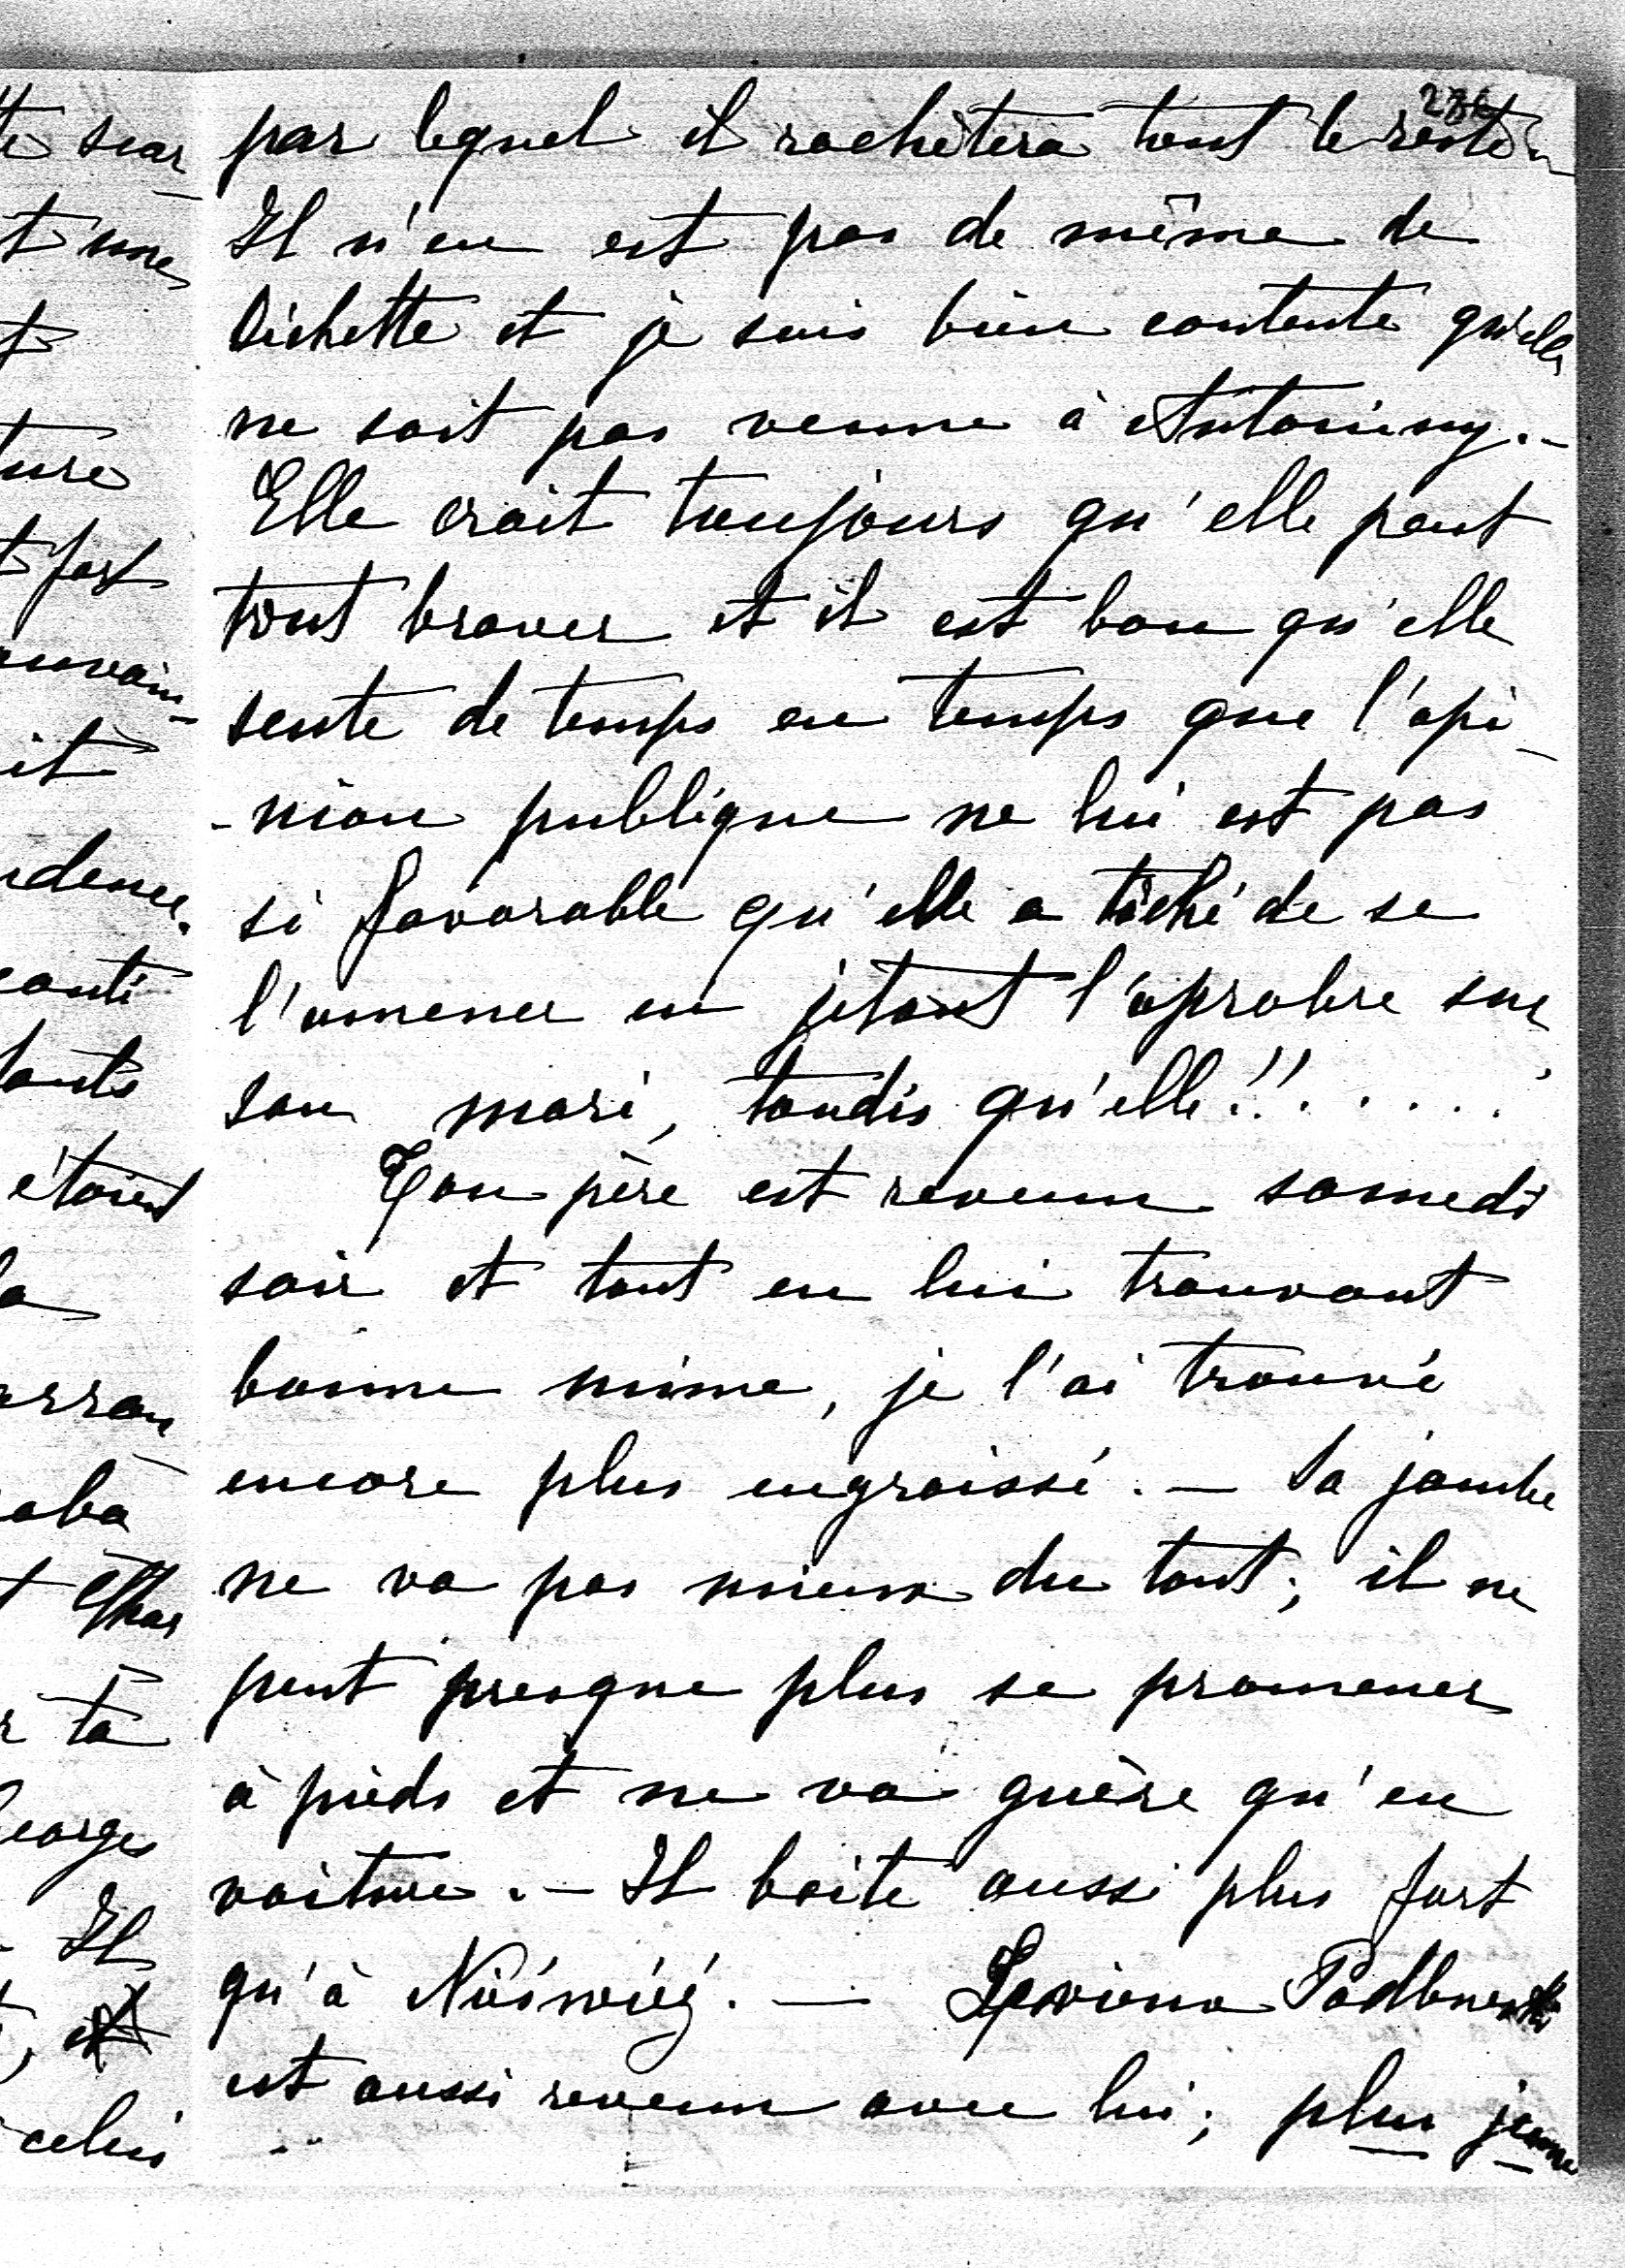 par lequel il rachètera tout le reste.
Il n'en est pas de même de
Bichette et je suis bien contente qu'elle
ne soit pas venue à Antoniny.-
Elle croit toujours qu'elle peut
tout braver et il est bon qu'elle
sente de temps en temps que l'opi-
-nion publique ne lui est pas
si favorable qu'elle a tâché de se
l'amener en jetant l'oprobre sur
son mari, tandis qu'elle!!......
Ton père est revenu samedi
soir et tout en lui trouvant
bonne mine, je l'ai trouvé
encore plus engraissé. — Sa jambe
ne va pas mieux du tout; il ne
peut presque plus se promener
à pieds et ne va guère qu'en
voiture. — Il boite aussi plus fort
qu'à Nieśwież. —
est aussi revenu avec lui; plus jeune